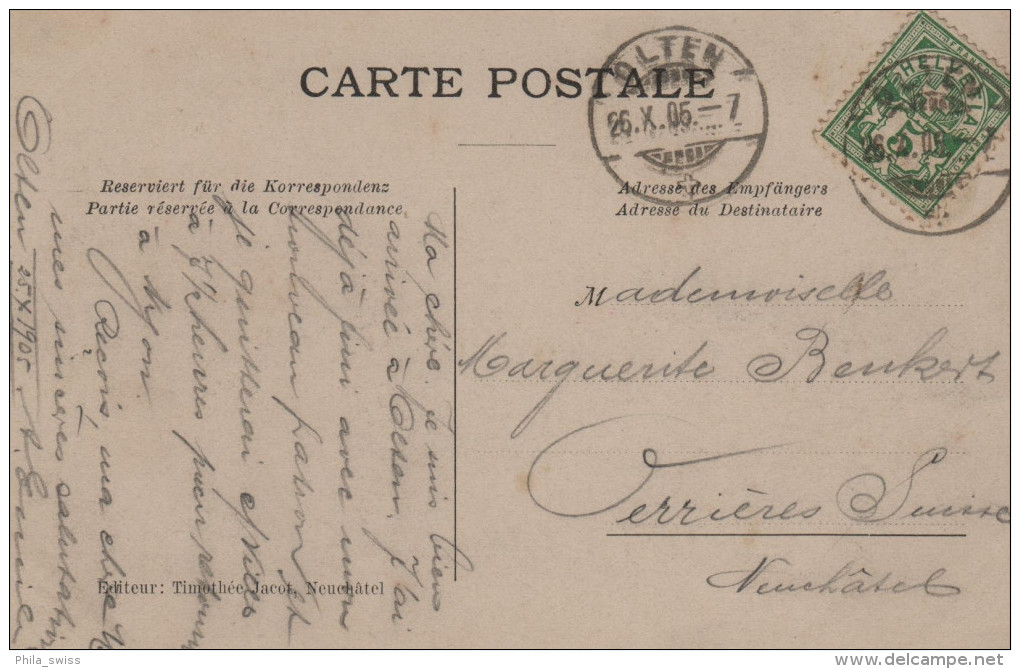 CARTE POSTALE
OLTEN
26.X.05.-7
HELVETIA
Reserviert für die Korrespondenz
Partie réservée à la Correspondance
Adresse des Empfängers
Adresse du Destinataire
Mademoiselle
Marguerite Benkert
Verrières Suisse
Neuchâtel
Ma chère. Je suis bien
arrivée à Olten, J'ai
déjà fini avec mon
nouveau patron et
je quitterai
à heures pour
à Nyon
Reçois, ma chère
mes sincères salutations
Olten 25.X.1905
Editeur: Timothée Jacot, Neuchâtel
Phila_swiss
www.delcampe.net